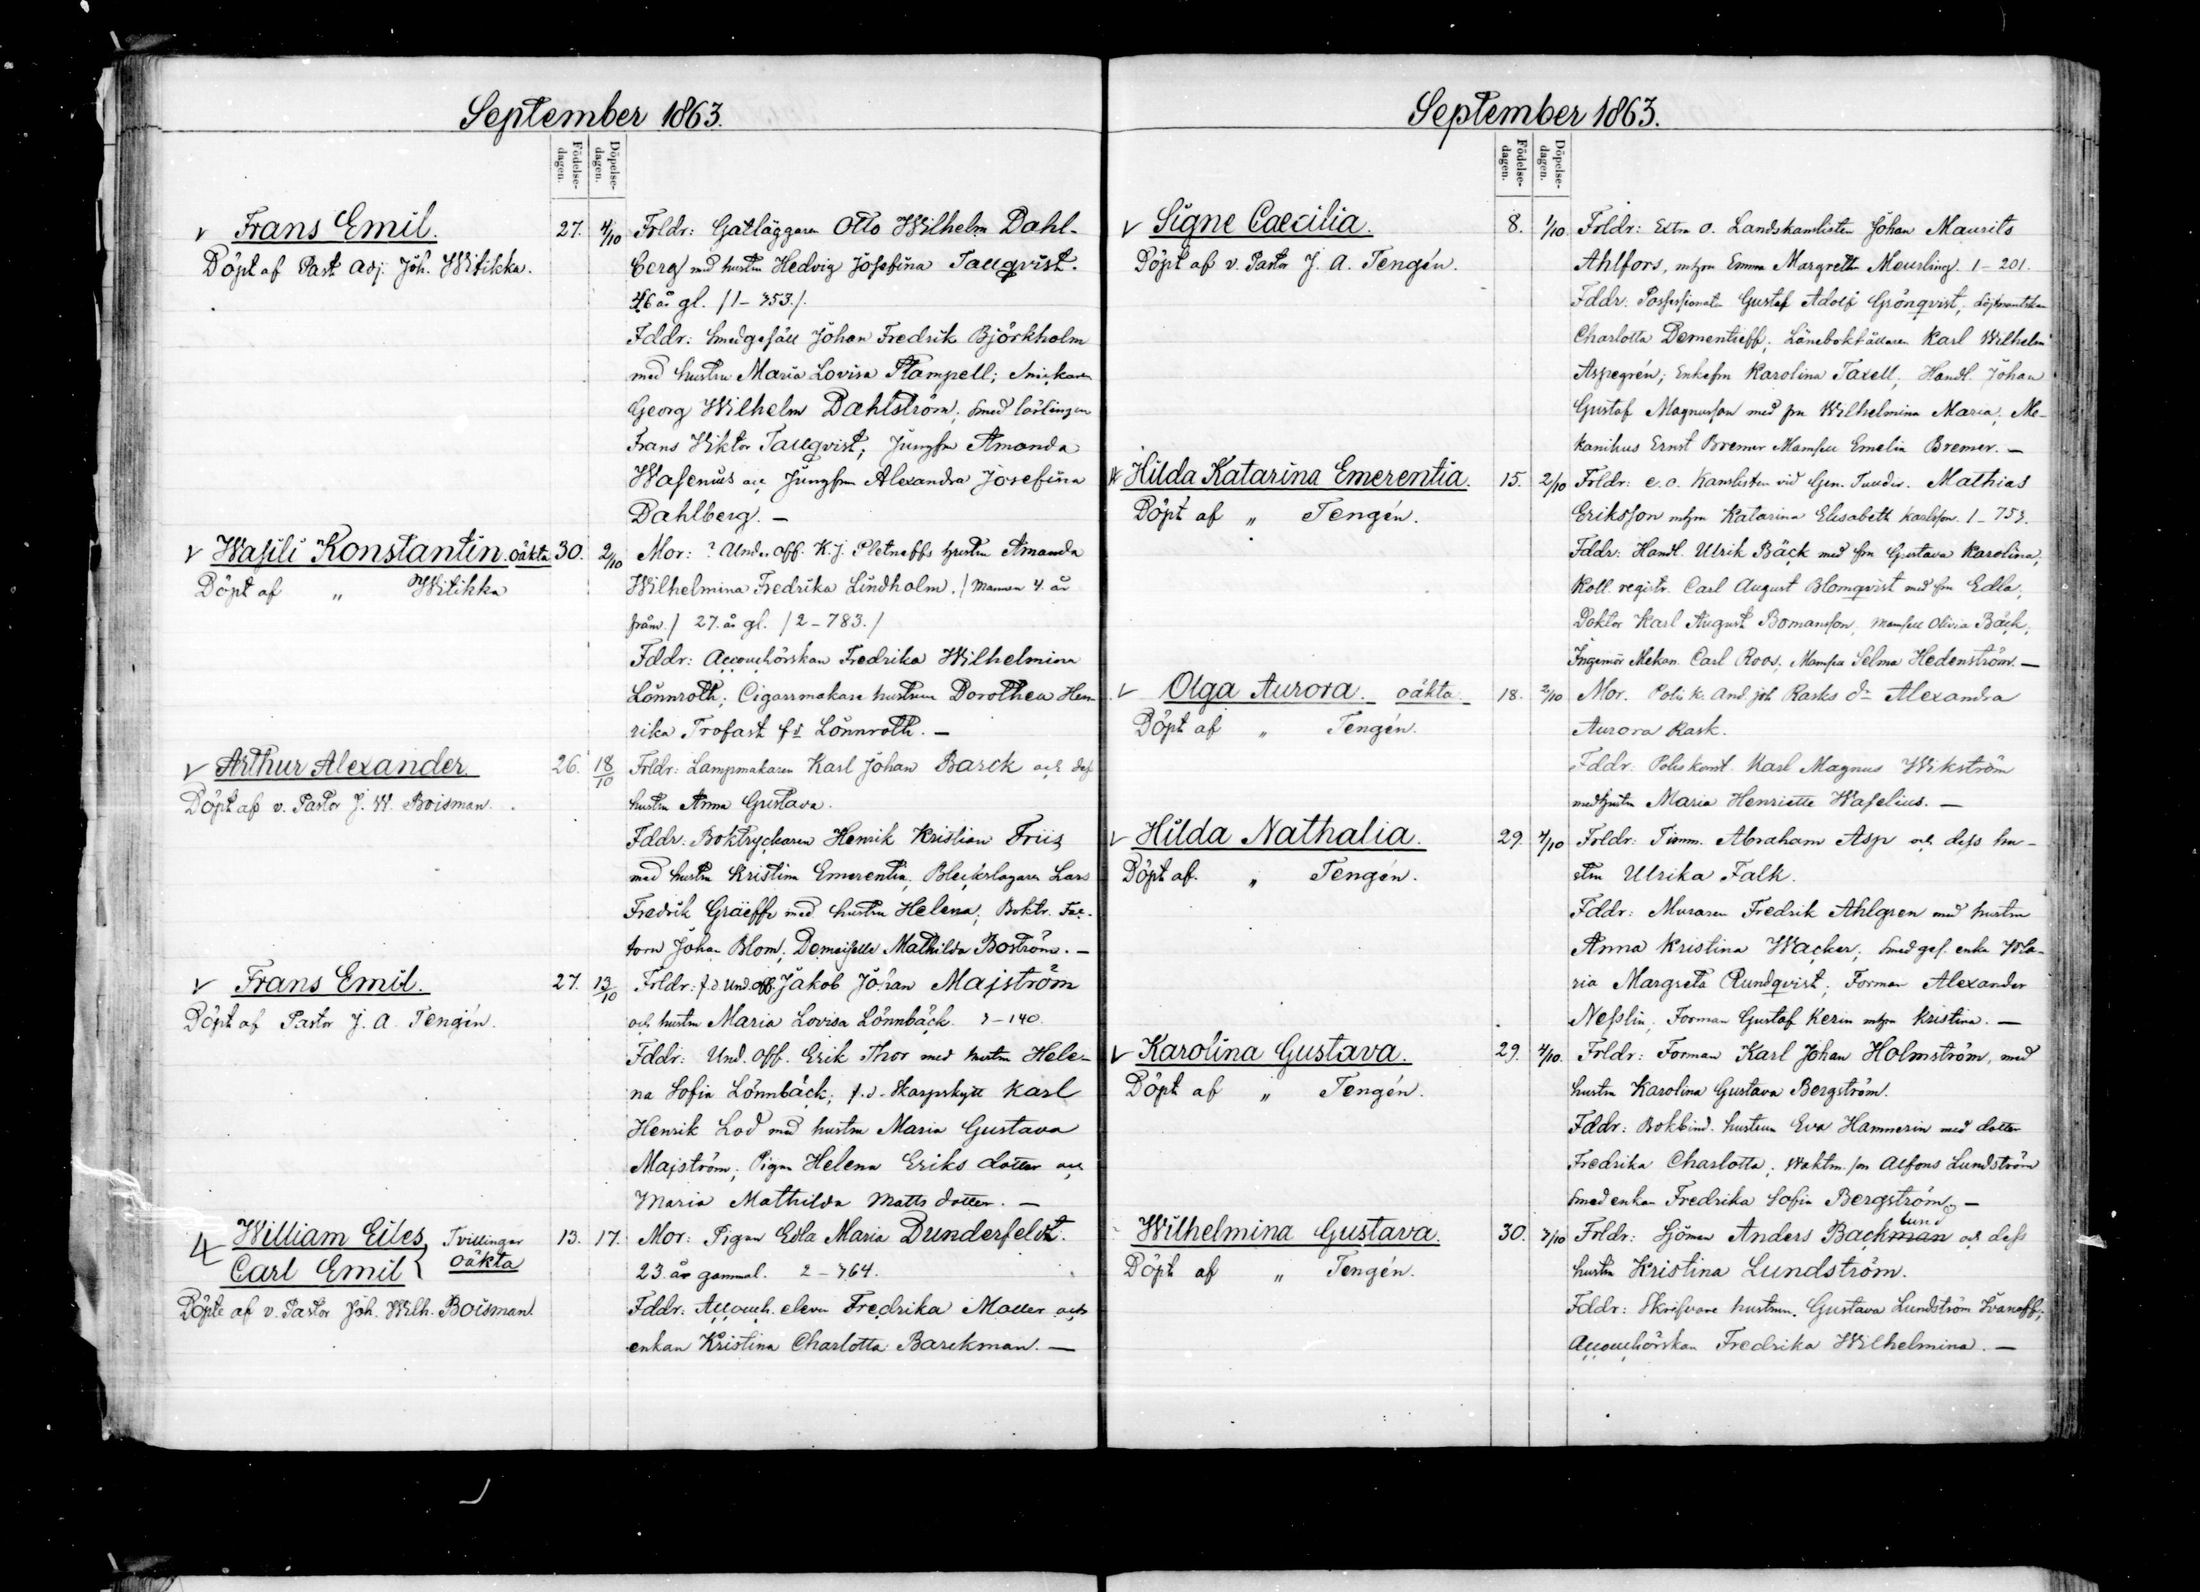 September 1863.
Födelse-dagen.
Döpelse-dagen.
Frans Emil.
Döpt af Past. Adj. Joh. Witikka.
27. 4/10
Frldr: Gatläggaren Otto Wilhelm Dahl-
berg med hustru Hedvig Josefina Tallqvist.
26 år gl. /1-753./
Fddr: Smedgesäll Johan Fredrik Björkholm
med hustru Maria Lovisa Stampell; Snickaren
Georg Wilhelm Dahlström; Smed lärlingen
Frans Viktor Tallqvist; Jungfru Amanda
Wasenius och Jungfrun Alexandra Josefina
Dahlberg. —
Wasili Konstantin. oäkta
Döpt af „ Witikka
30. 2/10
Mor: ? Und. off. K. J. Pletneffs hustru Amanda
Wilhelmina Fredrika Lindholm. / Mannen 4. år
frånv. / 27. år gl. /2-783./
Fddr: Accouchörskan Fredrika Wilhelmina
Lönnroth; Cigarrmakare hustrun Dorothea Hen-
rika Trofast fd Lönnroth. —
Arthur Alexander.
Döpt af v. Pastor J. W. Boisman.
26. 18/10
Frldr: Lampmakaren Karl Johan Barck och dess
hustru Anna Gustava.
Fddr: Boktryckaren Henrik Kristian Friis
med hustru Kristina Emerentia; Bleckslagaren Lars
Fredrik Gräeffe med hustru Helena; Boktr. Fac-
torn Johan Blom; Demoiselle Mathilda Boström. —
Frans Emil.
Döpt af Pastor J. A. Tengén.
27. 13/10
Frldr: f.d Und. off. Jakob Johan Majström
och hustru Maria Lovisa Lönnbäck. 7-140.
Fddr: Und. Off. Erik Thor med hustru Hele-
na Sofia Lönnbäck; f.d. Skarpskytt Karl
Henrik Lod med hustru Maria Gustava
Majström; Pigan Helena Eriks dotter och
Maria Mathilda Matts dotter. —
William Eiles
Carl Emil
Tvillingar
oäkta
Döpte af v. Pastor Joh. Wilh. Boisman.
13. 17.
Mor: Pigan Edla Maria Dunderfeldt.
23 år gammal. 2-764.
Fddr: Accouch. eleven Fredrika Moller och
enkan Kristina Charlotta Barckman. —
September 1863.
Födelse-dagen.
Döpelse-dagen.
Signe Caecilia.
Döpt af v. Pastor J. A. Tengén.
8. 1/10.
Frldr: Extra o. Landskanslisten Johan Maurits
Ahlfors, m hru Emma Margretha Meurling. 1-201.
Fddr. Possessionaten Gustaf Adolf Grönqvist;
Charlotta Dementieff; Länebokhållaren Karl Wilhelm
Aspegrén; Enkefru Karolina Taxell, Handl. Johan
Gustaf Magnusson med fru Wilhelmina Maria; Me-
kanikus Ernst Bremer Mamsell Emelie Bremer. —
Hilda Katarina Emerentia.
Döpt af „ Tengén.
15. 2/10
Frldr: e. o. Kanslisten vid Gen. Mathias
Eriksson m hru Katarina Elisabeth Karlsson. 1-753.
Fddr: Handl. Ulrik Bäck med fru Gustava Karolina;
Koll. registr. Carl August Blomqvist med fru Edla;
Doktor Karl August Bomansson, Mamsell Olivia Bäck;
Ingeniör Mekan. Carl Roos, Mamsell Selma Hedenström. —
Olga Aurora. oäkta
Döpt af „ Tengén.
18. 2/10
Mor. Polis k. And. Joh Rasks dr Alexandra
Aurora Rask.
Fddr. Polis konst. Karl Magnus Wikström
med hustru Maria Henriette Waselius. —
Hilda Nathalia.
Döpt af. „ Tengén.
29. 4/10
Frldr: Timm. Abraham Asp och dess hu-
stru Ulrika Falk.
Fddr: Muraren Fredrik Ahlgren med hustru
Anna Kristina Wacker; Smed ges. enka Ma-
ria Margreta Rundqvist; Forman Alexander
Nesslin; Forman Gustaf Kerin m hru Kristina. —
Karolina Gustava.
Döpt af „ Tengén.
29. 4/10.
Frldr: Forman Karl Johan Holmström, med
hustru Karolina Gustava Bergström.
Fddr: Bokbind. hustrun Eva Hammerin med dotter
Fredrika Charlotta; Waktm. son Alfons Lundström
Smed enkan Fredrika Sofia Bergström —
Wilhelmina Gustava.
Döpt af „ Tengén.
30. 7/10
lund
Frldr: Sjöman Anders Backman och dess
hustru Kristina Lundström.
Fddr: Skrifvare hustrun. Gustava Lundström Ivanoff;
Accouchörskan Fredrika Wilhelmina. —